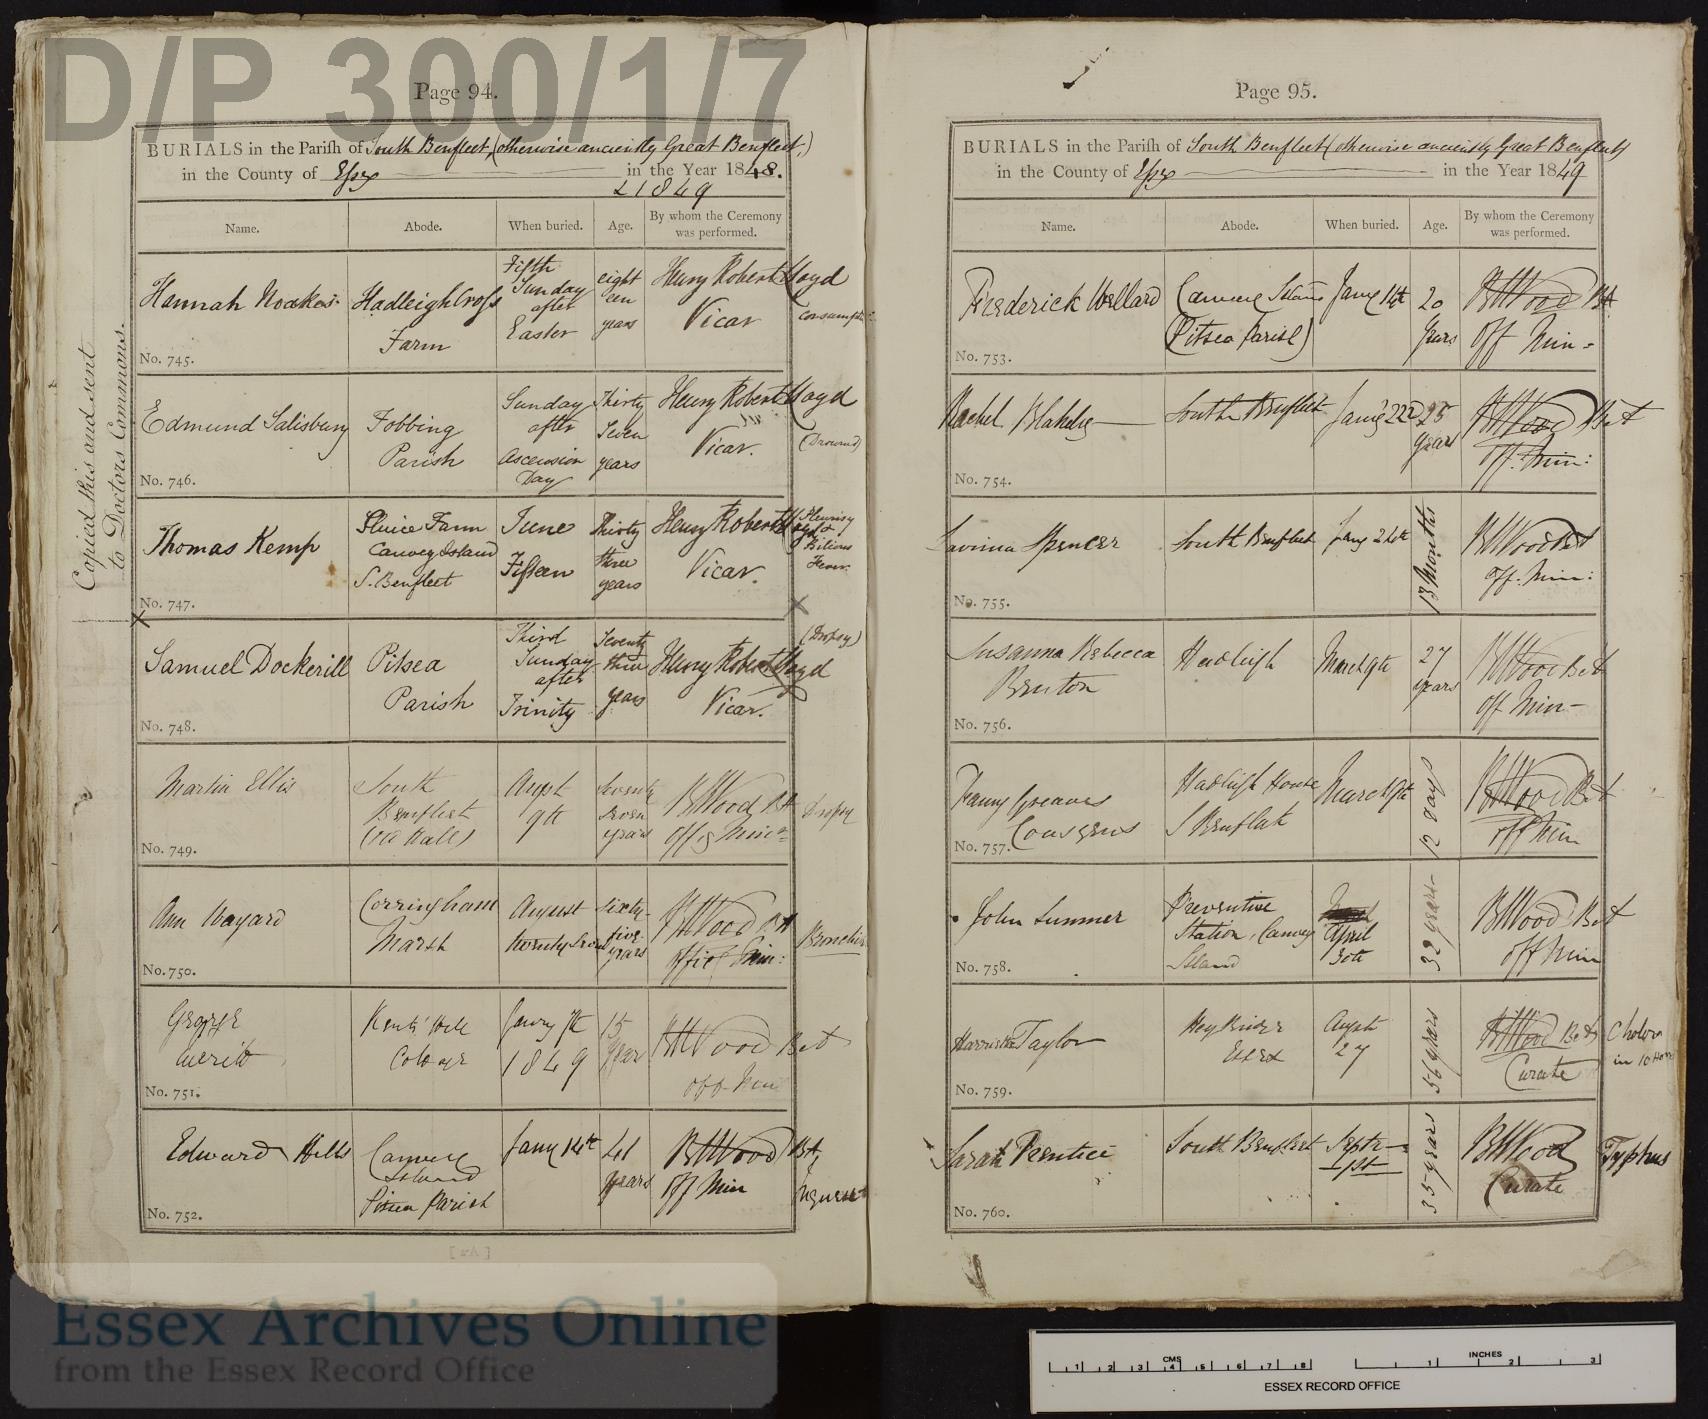 D/P 300/1/7
Page 94.
BURIALS in the Parish of South Benfleet, (otherwise anciently Great Benfleet,)
in the County of Essex in the Year 1848.
& 1849
Name. Abode. When buried. Age. By whom the Ceremony was performed.
Copied this and sent
to Doctors Commons.
Hannah Noakes
No. 745.
Hadleigh Cross
Farm
Fifth
Sunday
after
Easter
eight
een
years
Henry Robert Lloyd
Vicar
Edmund Salisbury
No. 746.
Fobbing
Parish
Sunday
after
Ascension
Day
Thirty
Seven
years
Henry Robert Lloyd
Vicar.
(Drowned)
Thomas Kemp
No. 747.
Sluice Farm
Canvey Island
S. Benfleet
June
Fifteen
Thirty
three
years
Henry Robert Lloyd
Vicar.
Bilious
Fever
Samuel Dockerill
No. 748.
Pitsea
Parish
Third
Sunday
after
Trinity
Seventy
three
years
Henry Robert Lloyd
Vicar.
(Dropsy)
Martin Ellis
No. 749.
South
Benfleet
Augst
9th
Seventy
seven
years
BWWood
Dropsy
Ann Wayard
No. 750.
Corringham
Marsh
August
twenty seven
sixty-
five
years
BWWood
George
No. 751.
Janry 7th
1849
15
years
Off. Min
Edward Hills
No. 752.
Canvey
Island
Pitsea Parish
Jany 14th
41
years
Off Min
Inquest
Page 95.
BURIALS in the Parish of South Benfleet (otherwise anciently Great Benfleet)
in the County of Essex in the Year 1849
Name. Abode. When buried. Age. By whom the Ceremony was performed.
Frederick Wellard
No. 753.
Canvey Island
(Pitsea Parish)
Jany 14th
20
years
Off Min-
Rachel Blakeley
No. 754.
South Benfleet
Jany 22d
25
years
Off. Min:
Lavinia Spencer
No. 755.
South Benfleet
Jany 24th
13 Months
Off. Min:
Susanna Rebecca
Brenton
No. 756.
Hadleigh
March 9th
27
years
Off Min-
Fanny Greaves
Cousens
No. 757.
Hadleigh House
S Benfleet
March 9th
12 days
Off Min
John Sumner
No. 758.
Preventive
Station, Canvey
Island
April
30th
32 years
Off Min
Harriet Taylor
No. 759.
Heybridge
Essex
Augst
27
56 years
Curate
Cholera
in 10 Hours
Sarah Prentice
No. 760.
South Benfleet
Septr
1st
35 years
Curate
Typhus
Essex Archives Online
from the Essex Record Office
CMS
1 2 3 4 5 6 7 8
INCHES
1 2 3
ESSEX RECORD OFFICE